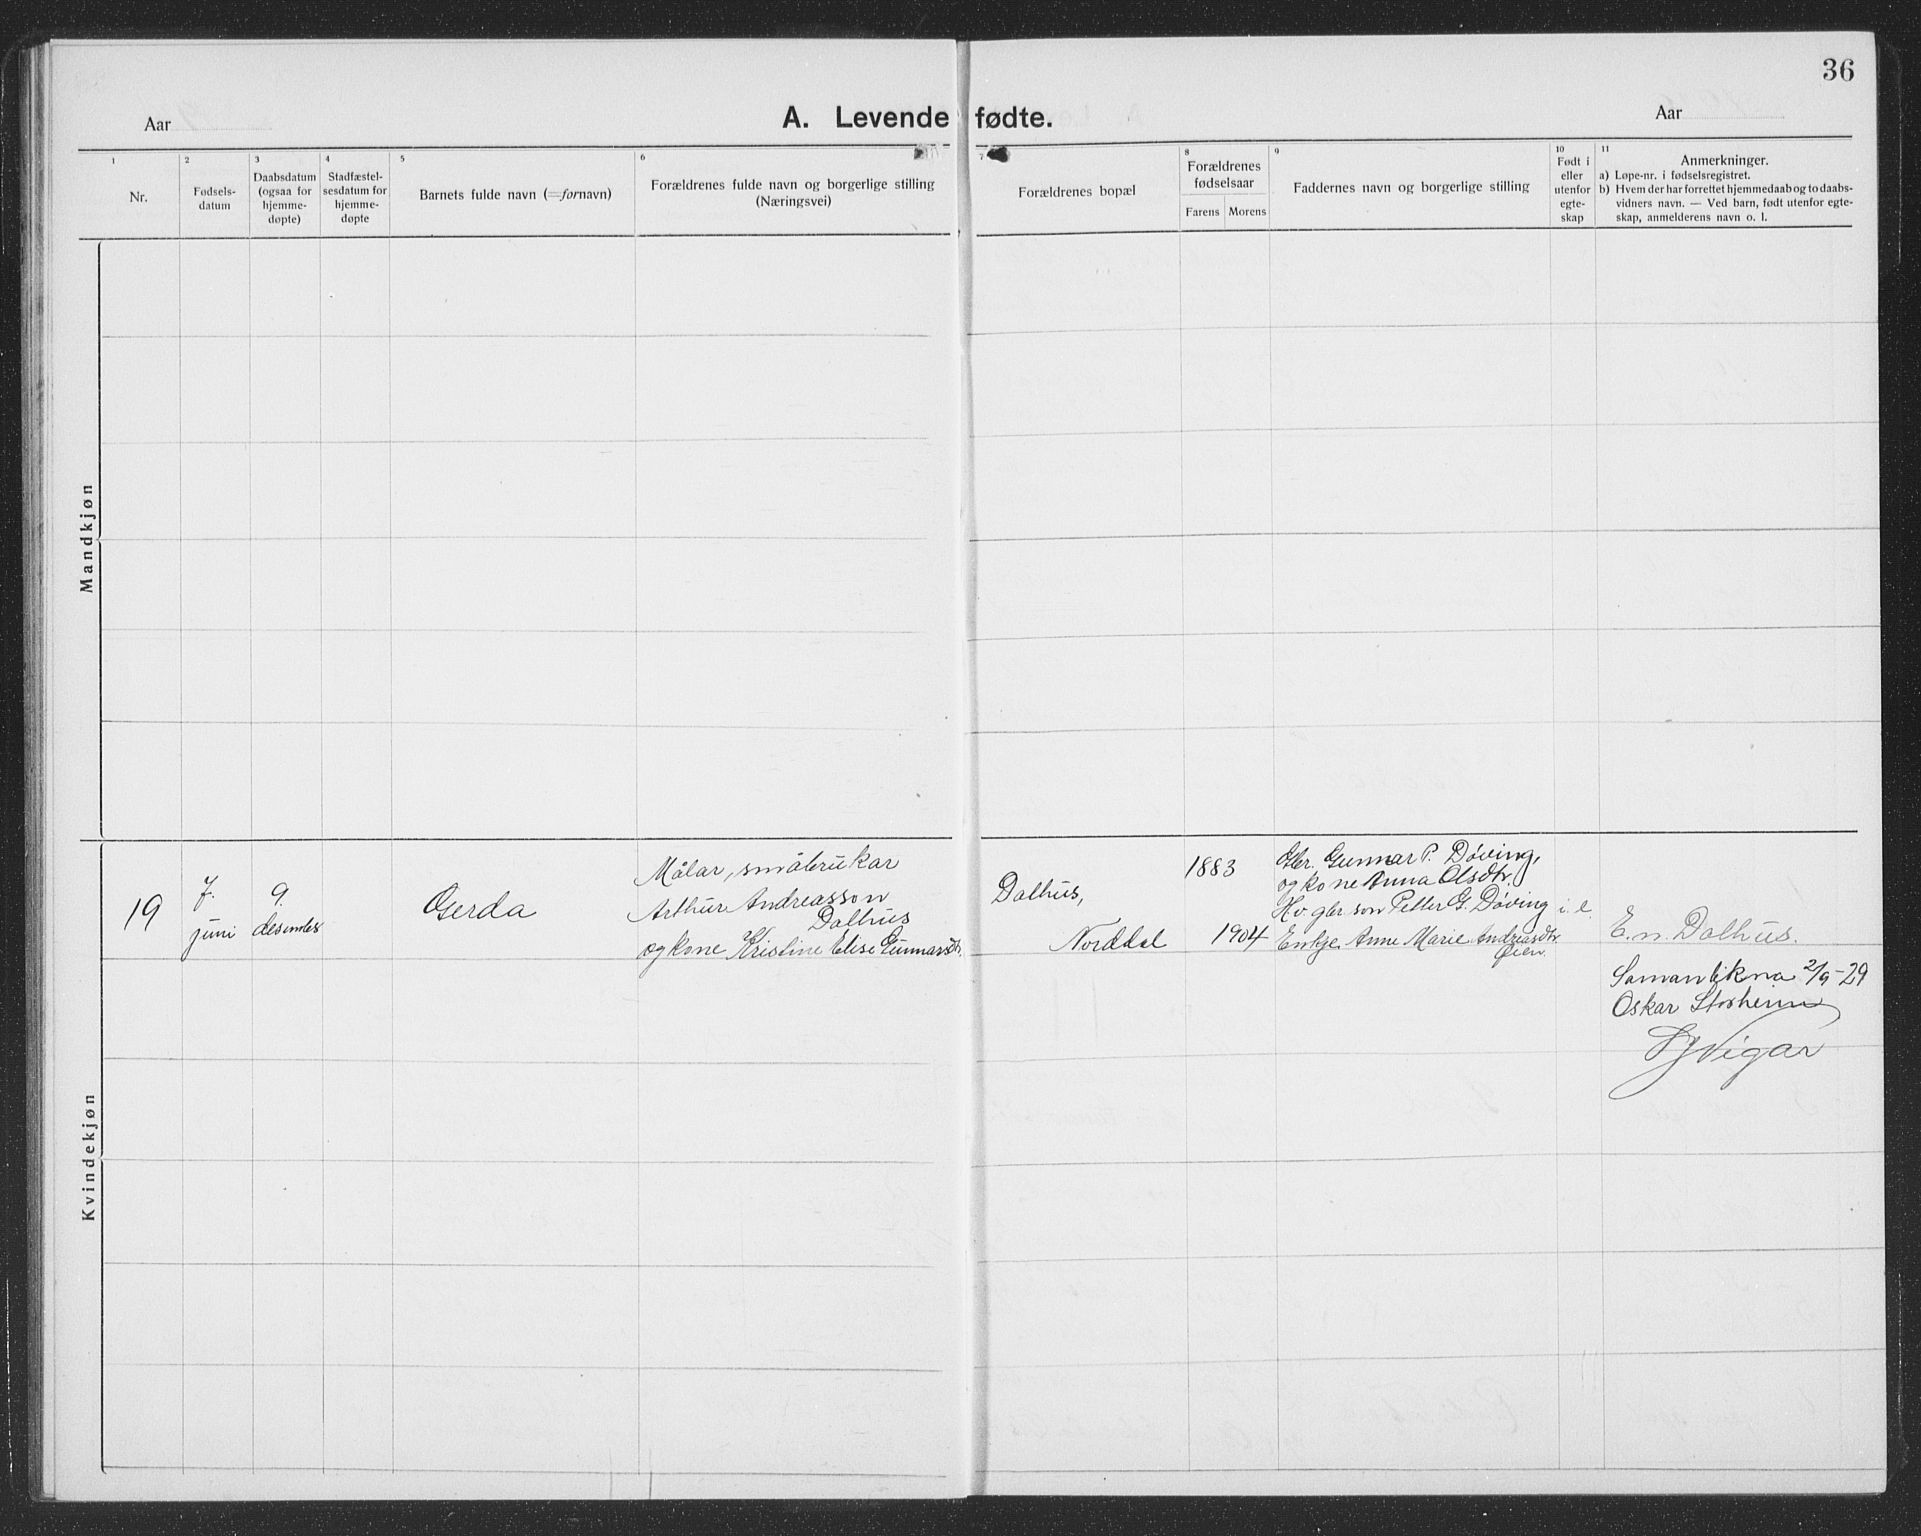 36
A. Levende fødte.
Aar
Aar
1
2
3
4
5
6
7
8
9
10
11
Nr.
Fødsels-
datum
Daabsdatum
(ogsaa for
hjemme-
døpte)
Stadfæstel-
sesdatum for
hjemme-
døpte
Barnets fulde navn (=fornavn)
Forældrenes fulde navn og borgerlige stilling
(Næringsvei)
Forældrenes bopæl
Forældrenes
fødselsaar
Farens Morens
Faddernes navn og borgerlige stilling
Født i
eller
utenfor
egte-
skap
Anmerkninger.
a) Løpe-nr. i fødselsregistret.
b) Hvem der har forrettet hjemmedaab og to daabs-
vidners navn. — Ved barn, født utenfor egte-
skap, anmelderens navn o. l.
Mandkjøn
Kvindekjøn
19
7.
juni
9.
desember
Gerda
Målar, småbrukar
Arthur Andreasson
Dalhus
og kone Kristine Elise Gunnarsdtr.
Dalhus,
Norddal
1883
1904
Gbr. Gunnar P. Døving,
og kone Anna Olsdtr.
Petter G. Døving
Enkje Anne Marie Andreasdtr.
Øien.
i. e.
E. n. Dalhus.
Samanlikna 2/9-29
Oskar Storheim